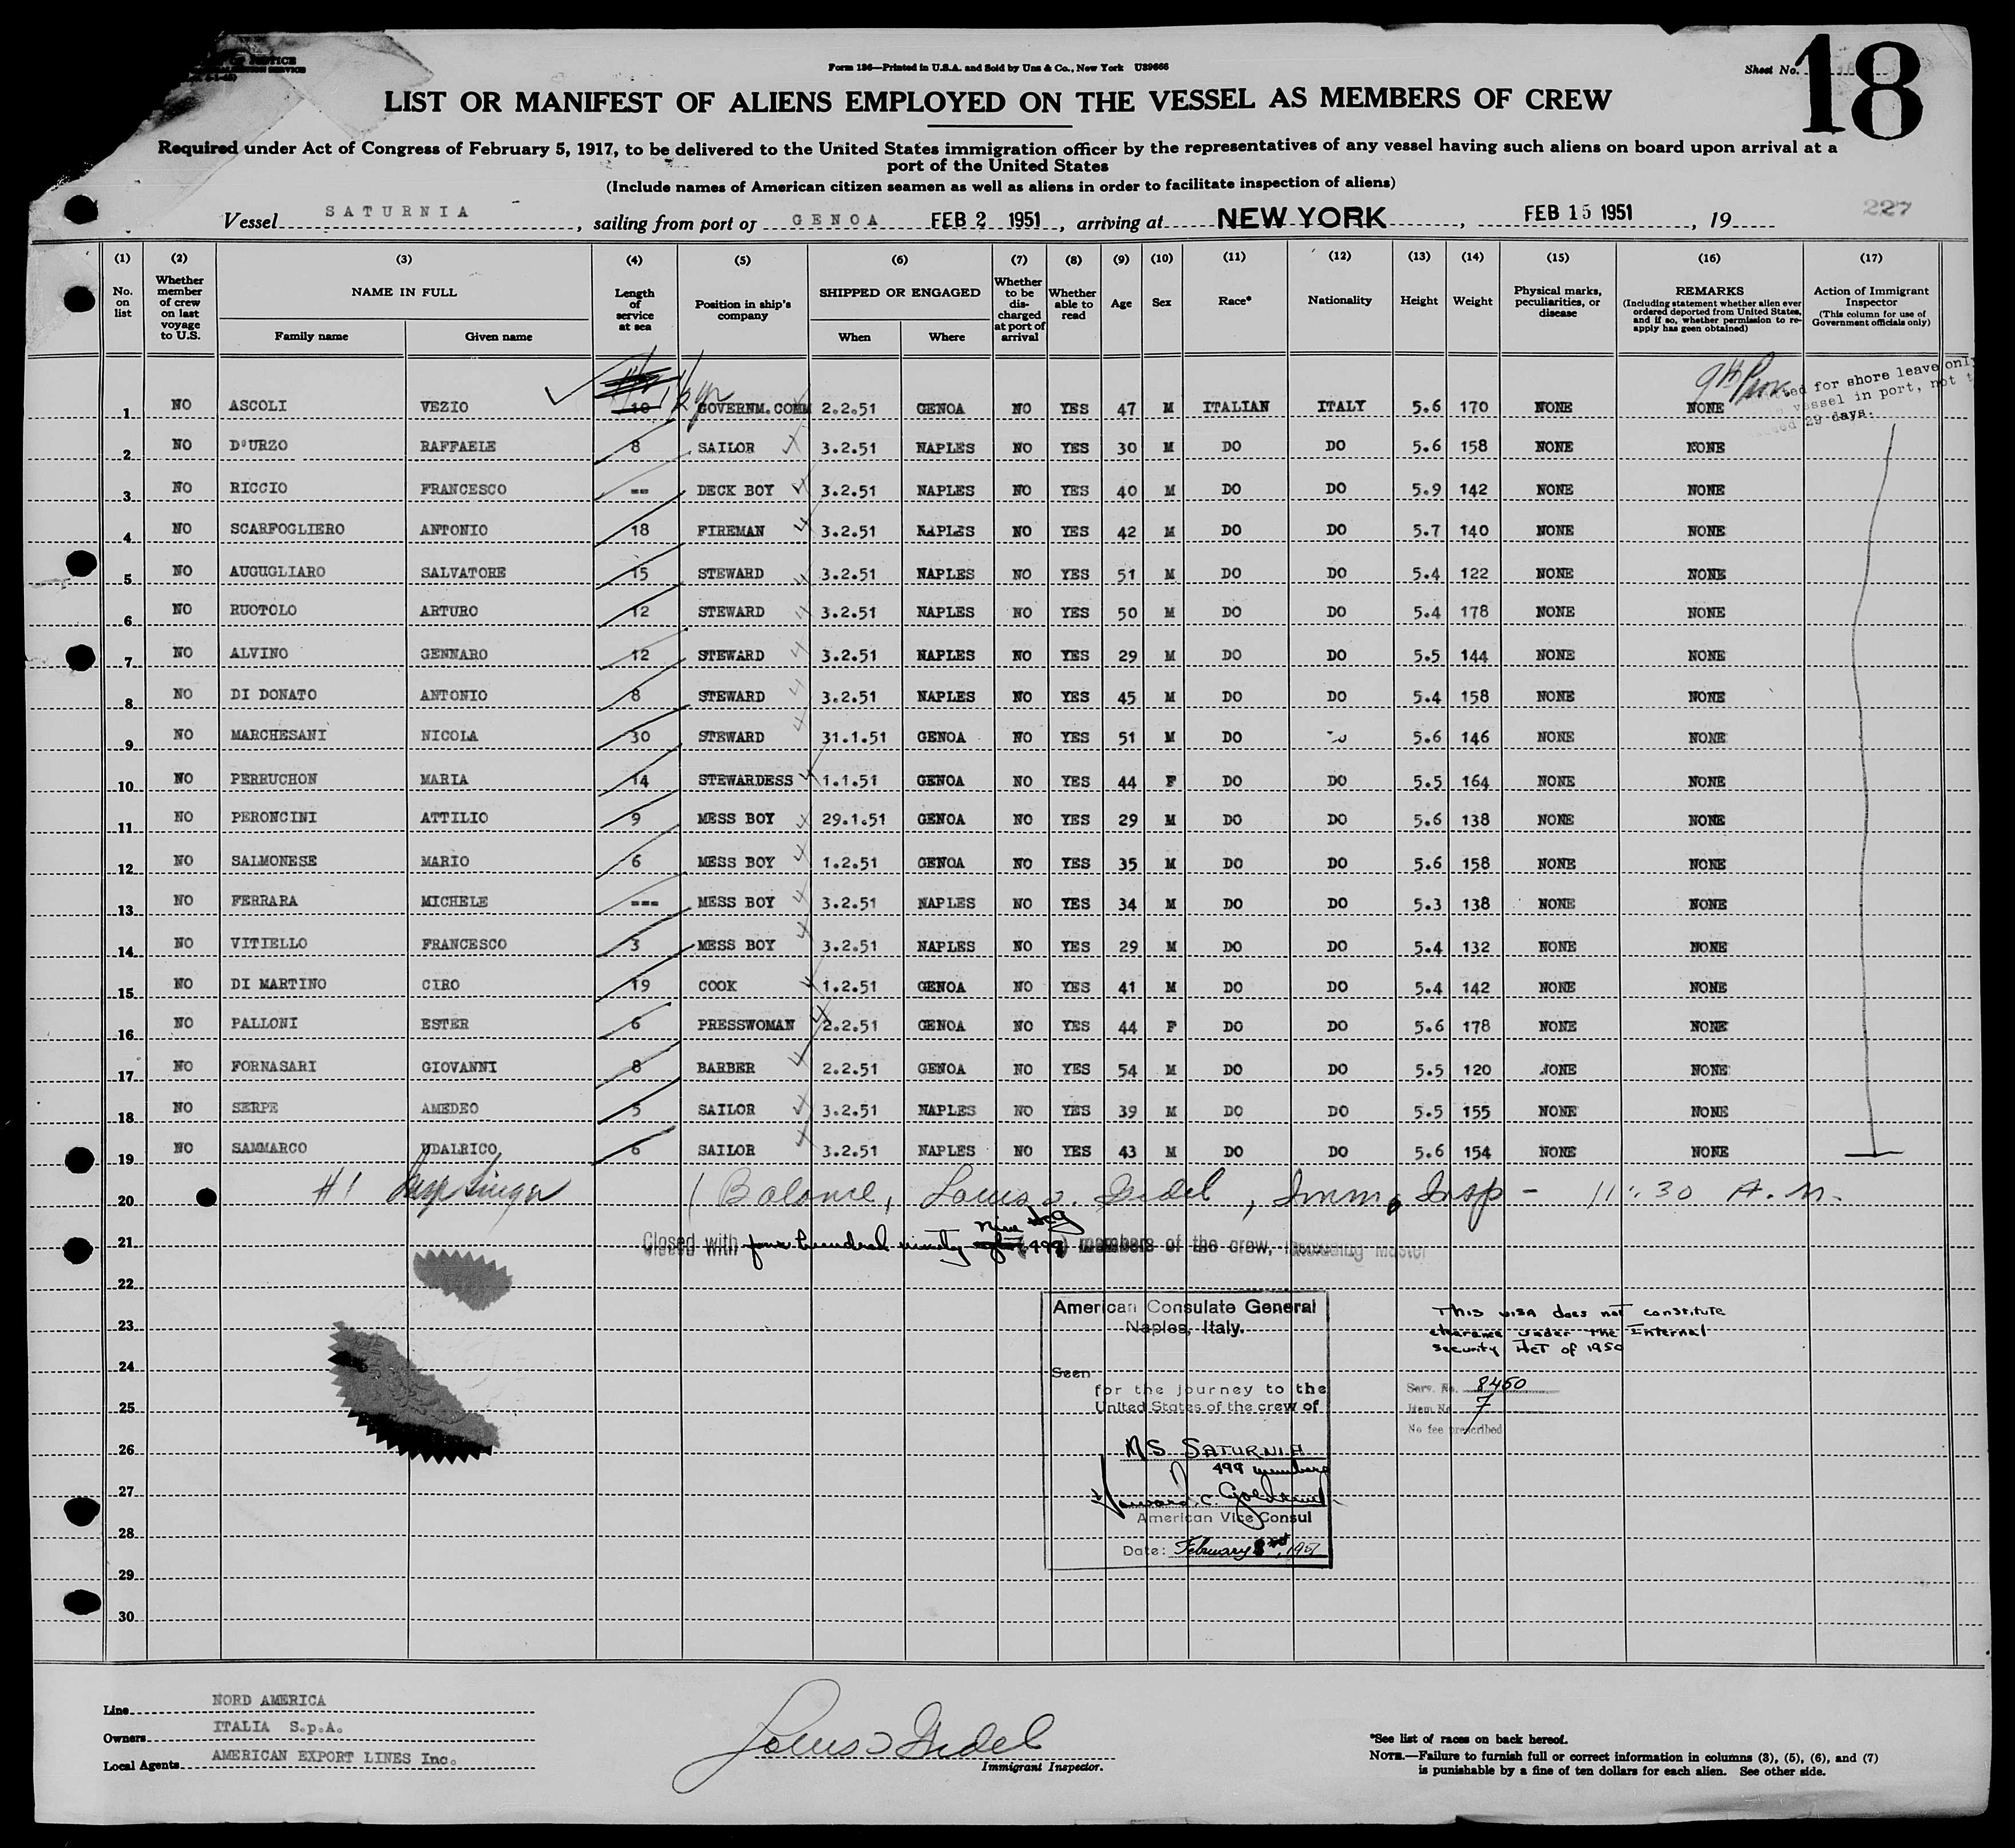 Form 136—Printed in U.S.A. and Sold by Unz & Co., New York U39666
Sheet No. 18
18
LIST OR MANIFEST OF ALIENS EMPLOYED ON THE VESSEL AS MEMBERS OF CREW
Required under Act of Congress of February 5, 1917, to be delivered to the United States immigration officer by the representatives of any vessel having such aliens on board upon arrival at a
port of the United States
(Include names of American citizen seamen as well as aliens in order to facilitate inspection of aliens)
Vessel SATURNIA, sailing from port of GENOA FEB 2 1951, arriving at NEW YORK, FEB 15 1951, 19 227
(1) (2) (3) (4) (5) (6) (7) (8) (9) (10) (11) (12) (13) (14) (15) (16) (17)
No. on list Whether member of crew on last voyage to U.S. NAME IN FULL Family name Given name Length of service at sea Position in ship's company SHIPPED OR ENGAGED When Where Whether to be discharged at port of arrival Whether able to read Age Sex Race* Nationality Height Weight Physical marks, peculiarities, or disease REMARKS (Including statement whether alien ever ordered deported from United States, and if so, whether permission to re-apply has geen obtained) Action of Immigrant Inspector (This column for use of Government officials only)
for shore leave only
vessel in port, not t
29 days.
1 NO ASCOLI VEZIO 10 GOVERNM.COMM 2.2.51 GENOA NO YES 47 M ITALIAN ITALY 5.6 170 NONE NONE
2 NO D'URZO RAFFAELE 8 SAILOR 3.2.51 NAPLES NO YES 30 M DO DO 5.6 158 NONE NONE
3 NO RICCIO FRANCESCO -- DECK BOY 3.2.51 NAPLES NO YES 40 M DO DO 5.9 142 NONE NONE
4 NO SCARFOGLIERO ANTONIO 18 FIREMAN 3.2.51 NAPLES NO YES 42 M DO DO 5.7 140 NONE NONE
5 NO AUGUGLIARO SALVATORE 15 STEWARD 3.2.51 NAPLES NO YES 51 M DO DO 5.4 122 NONE NONE
6 NO RUOTOLO ARTURO 12 STEWARD 3.2.51 NAPLES NO YES 50 M DO DO 5.4 178 NONE NONE
7 NO ALVINO GENNARO 12 STEWARD 3.2.51 NAPLES NO YES 29 M DO DO 5.5 144 NONE NONE
8 NO DI DONATO ANTONIO 8 STEWARD 3.2.51 NAPLES NO YES 45 M DO DO 5.4 158 NONE NONE
9 NO MARCHESANI NICOLA 30 STEWARD 31.1.51 GENOA NO YES 51 M DO DO 5.6 146 NONE NONE
10 NO PERRUCHON MARIA 14 STEWARDESS 1.1.51 GENOA NO YES 44 F DO DO 5.5 164 NONE NONE
11 NO PERONCINI ATTILIO 9 MESS BOY 29.1.51 GENOA NO YES 29 M DO DO 5.6 138 NONE NONE
12 NO SALMONESE MARIO 6 MESS BOY 1.2.51 GENOA NO YES 35 M DO DO 5.6 158 NONE NONE
13 NO FERRARA MICHELE --- MESS BOY 3.2.51 NAPLES NO YES 34 M DO DO 5.3 138 NONE NONE
14 NO VITIELLO FRANCESCO 3 MESS BOY 3.2.51 NAPLES NO YES 29 M DO DO 5.4 132 NONE NONE
15 NO DI MARTINO CIRO 19 COOK 1.2.51 GENOA NO YES 41 M DO DO 5.4 142 NONE NONE
16 NO PALLONI ESTER 6 PRESSWOMAN 2.2.51 GENOA NO YES 44 F DO DO 5.6 178 NONE NONE
17 NO FORNASARI GIOVANNI 8 BARBER 2.2.51 GENOA NO YES 54 M DO DO 5.5 120 NONE NONE
18 NO SERPE AMEDEO 5 SAILOR 3.2.51 NAPLES NO YES 39 M DO DO 5.5 155 NONE NONE
19 NO SAMMARCO UDALRICO 6 SAILOR 3.2.51 NAPLES NO YES 43 M DO DO 5.6 154 NONE NONE
20 #1 Balance, Louis Gidel, Imm. Insp - 11:30 A.M.
21 Closed with four hundred ninety nine (499) members of the crew,
22
American Consulate General
Naples, Italy.
This visa does not constitute
clearance under the Internal
Security Act of 1950
23
24
Seen
for the journey to the
United States of the crew of
Serv. No. 8460
Item No. 7
No fee prescribed
25
26
MS SATURNIA
499 members
27
Howard C.
American Vice Consul
28
Date: February 3rd, 1951
29
30
Line NORD AMERICA
Owners ITALIA S.p.A.
Local Agents AMERICAN EXPORT LINES Inc.
Louis Gidel
Immigrant Inspector.
*See list of races on back hereof.
NOTE.—Failure to furnish full or correct information in columns (3), (5), (6), and (7)
is punishable by a fine of ten dollars for each alien. See other side.